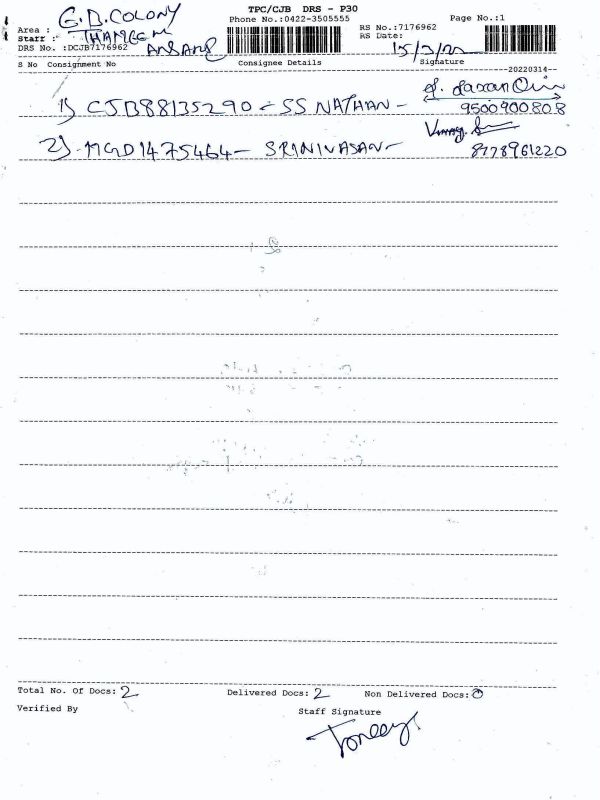 TPC/CJB DRS - P30
Area : G.D.COLONY
Phone No.:0422-3505555
RS No.:7176962
Page No.:1
Staff : THAMEEM ANSARI
RS Date: 15/3/22
DRS No. :DCJB7176962
S No Consignment No
Consignee Details
Signature
20220314
1) CJB88135290 - SS NATHAN -
9500900808
2) MGD1475464 - SRINIVASAN -
8778961220
Total No. Of Docs: 2
Delivered Docs: 2
Non Delivered Docs: 0
Verified By
Staff Signature